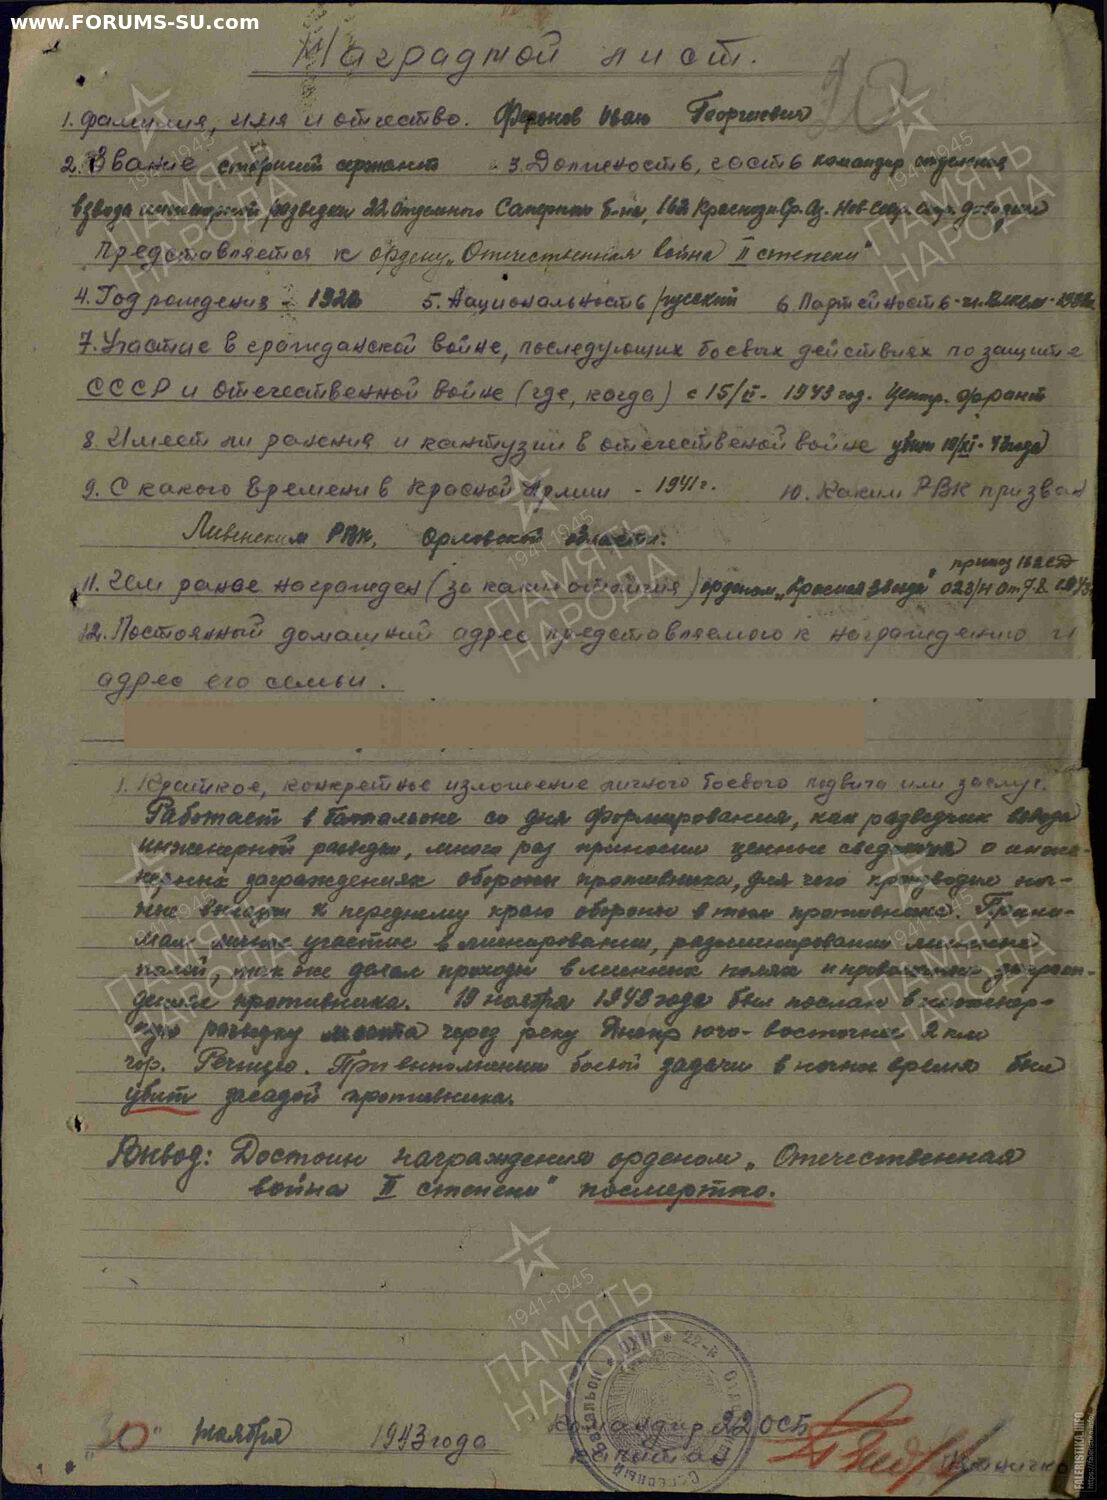 www.FORUMS-SU.com
Наградной лист.
1. Фамилия, имя и отчество. Иван Георгиевич
2. Звание старший сержант 3. Должность, часть командир отделения
взвода инженерной разведки 22 отдельного Саперного б-на, 162
Представляется к ордену „Отечественная война II степени"
4. Год рождения - 1922 5. Национальность русский 6. Партийность -
7. Участие в гражданской войне, последующих боевых действиях по защите
СССР и отечественной войне (где, когда) с 15/II - 1943 год. Центр. фронт
8. Имеет ли ранения и контузии в отечественой войне убит 19/XI - 43 года
9. С какого времени в Красной Армии - 1941 г. 10. Каким РВК призван
Ливенским РВК, Орловской области.
11. Чем ранее награжден (за какие отличия) орденом „Красная Звезда" приказ 162 СД 023/н от 7.8.
12. Постоянный домашний адрес представляемого к награждению и
адрес его семьи.
1. Краткое, конкретное изложение личного боевого подвига или заслуг.
Работает в батальоне со дня формирования, как разведчик взвода
инженерной разведки, много раз приносил ценные сведения о инже-
нерных заграждениях обороны противника, для чего производил ноч-
ные к переднему краю обороны в тыл противника. Прини-
мал личное участие в минировании, разминировании минных
полей, так же делал проходы в минных полях и проволочных заграж-
дениях противника. 19 ноября 1943 года был послан в инженер-
ную разведку моста через реку Днепр юго-восточнее 2 км
гор. Речица. При выполнении боевой задачи в ночное время был
убит засадой противника.
Вывод: Достоин награждения орденом „Отечественная
война II степени" посмертно.
"30" ноября 1943 года
Командир 22 ОСБ
капитан
ПАМЯТЬ НАРОДА
1941-1945
FALERISTIKA.INFO